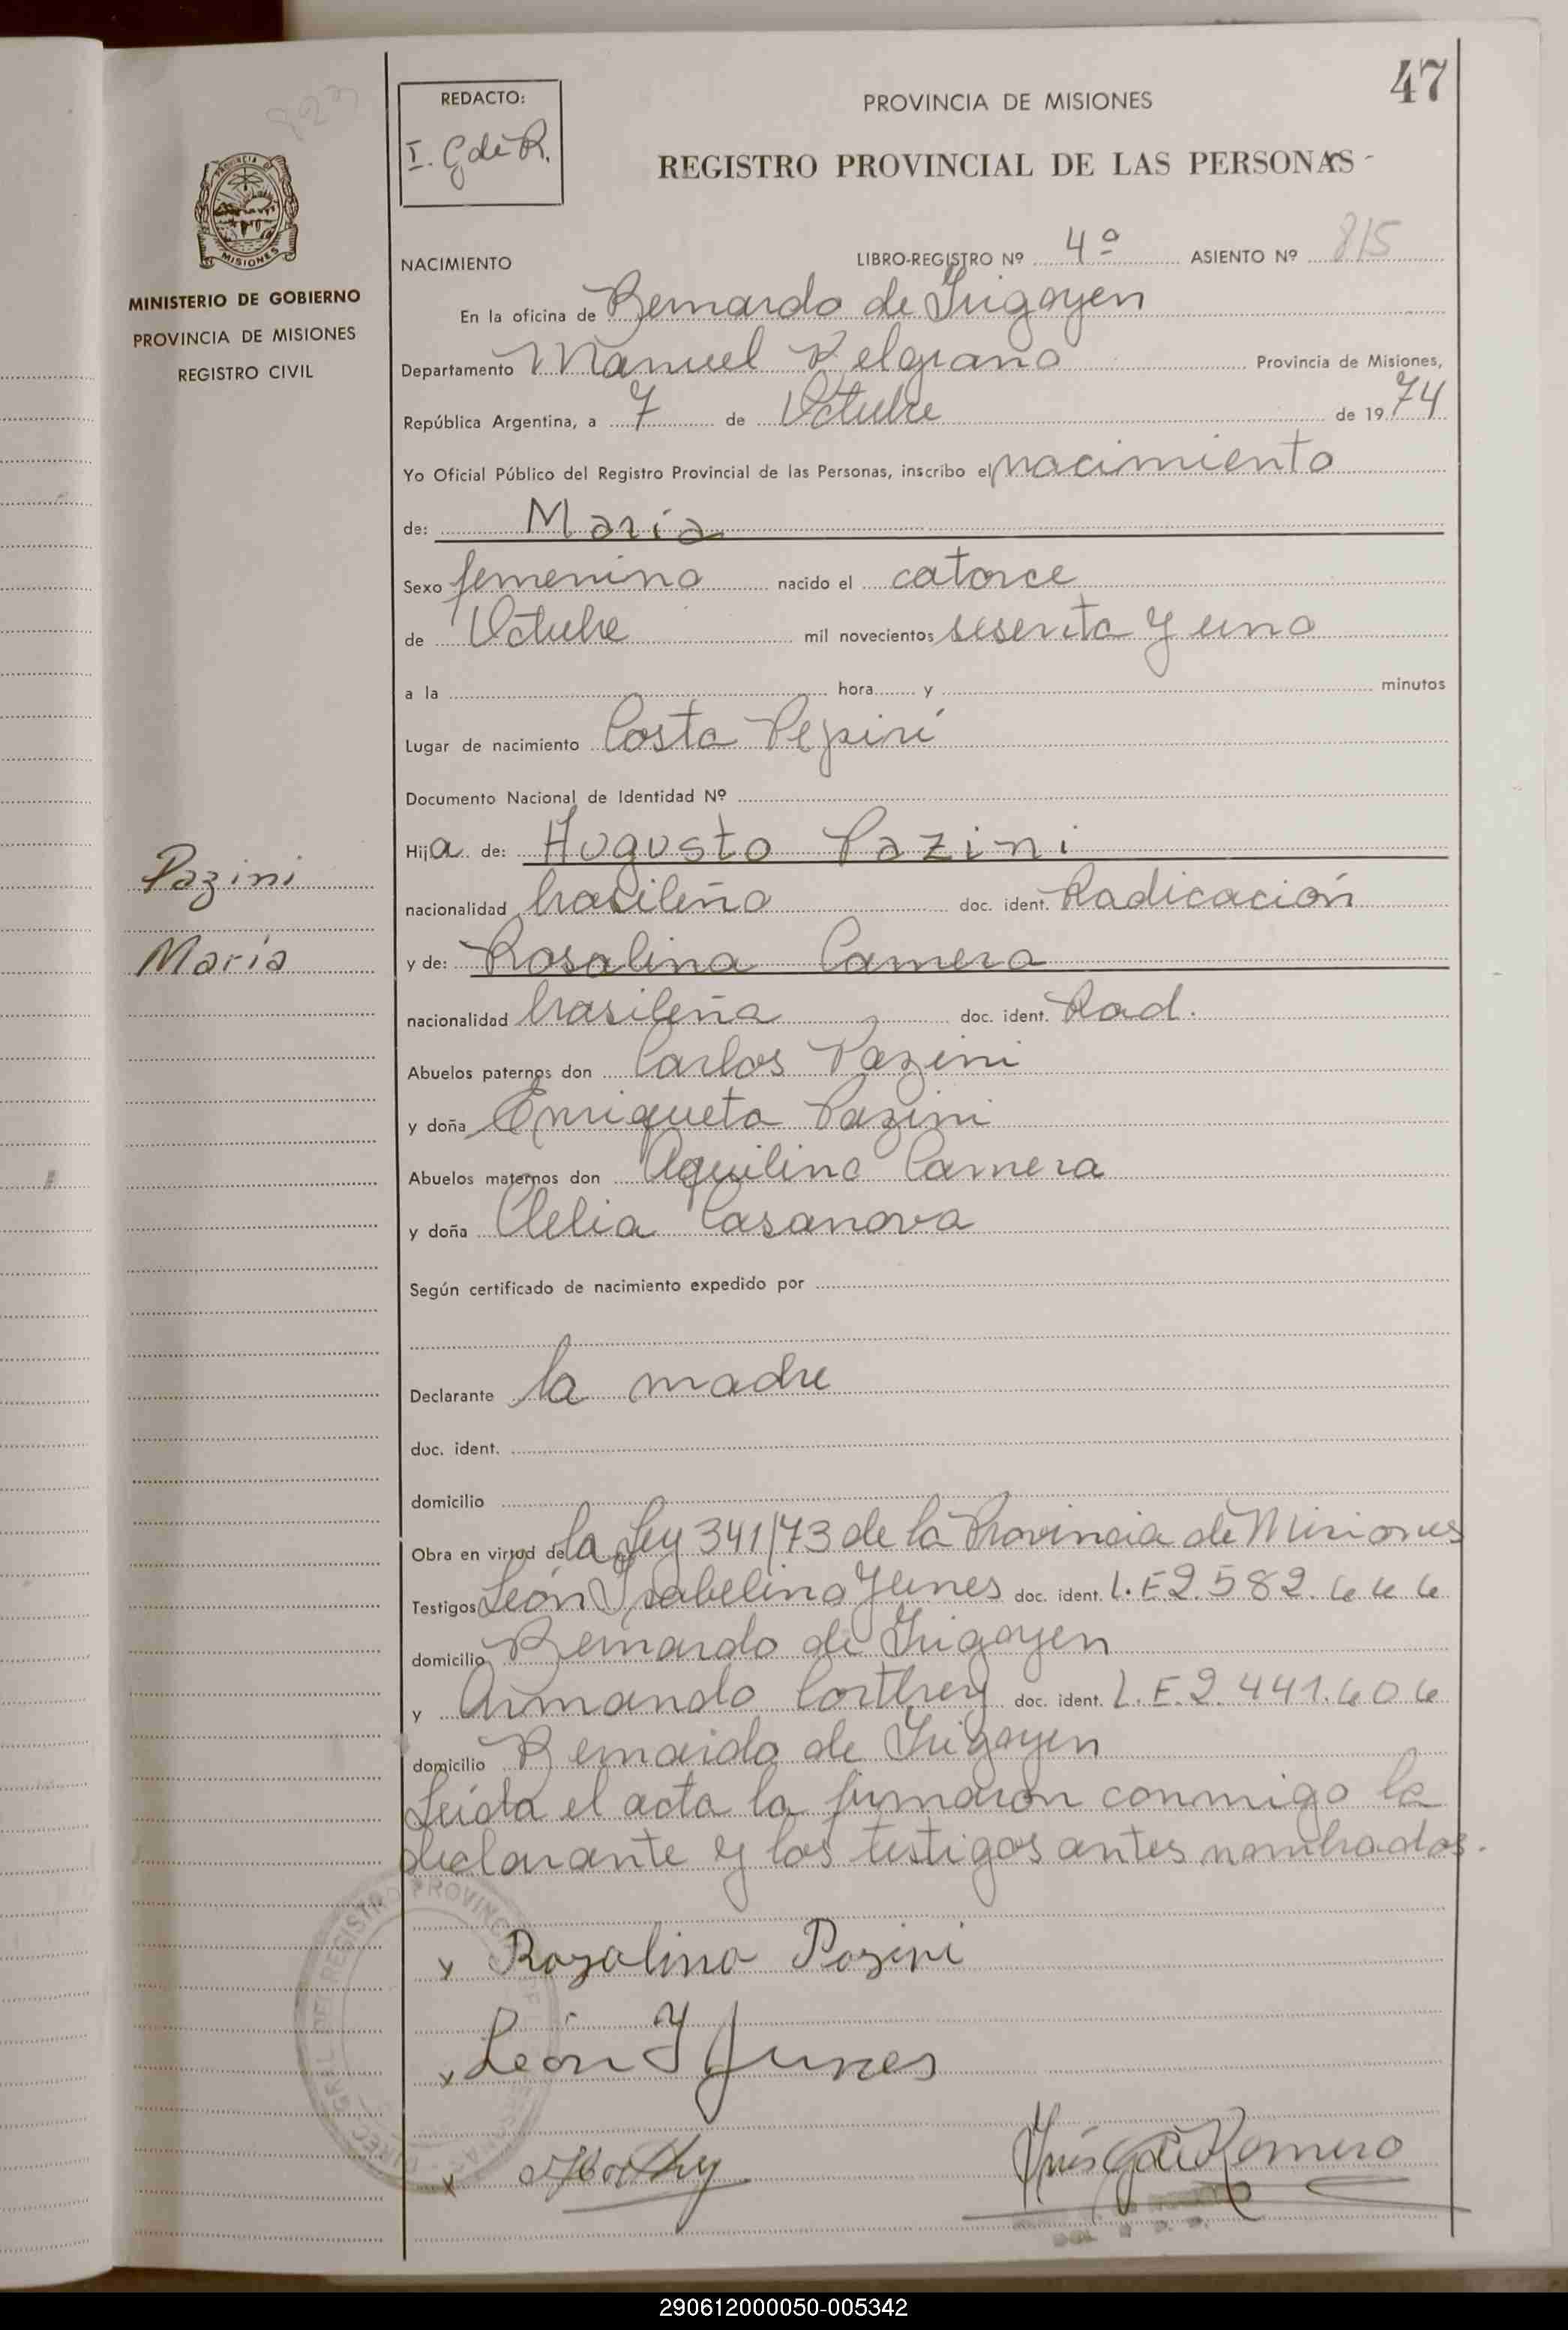 47
823
REDACTO:
I. G de R.
PROVINCIA DE MISIONES
REGISTRO PROVINCIAL DE LAS PERSONAS
PROVINCIA DE
MISIONES
MINISTERIO DE GOBIERNO
PROVINCIA DE MISIONES
REGISTRO CIVIL
NACIMIENTO LIBRO-REGISTRO Nº 4º ASIENTO Nº 815
En la oficina de Bernardo de Irigoyen
Departamento Manuel Belgrano Provincia de Misiones,
República Argentina, a 7 de Octubre de 1974
Yo Oficial Público del Registro Provincial de las Personas, inscribo el nacimiento
de: María
Sexo femenino nacido el catorce
de Octubre mil novecientos sesenta y uno
a la hora y minutos
Lugar de nacimiento Costa Pepirí
Documento Nacional de Identidad Nº
Hija de: Augusto Pazini
Pazini
nacionalidad brasileño doc. ident. Radicación
María
y de: Rosalina Camera
nacionalidad brasileña doc. ident. Rad.
Abuelos paternos don Carlos Pazini
y doña Enriqueta Pazini
Abuelos maternos don Aquilino Camera
y doña Clelia Casanova
Según certificado de nacimiento expedido por
Declarante la madre
doc. ident.
domicilio
Obra en virtud de la Ley 341/73 de la Provincia de Misiones
Testigos León Isabelino Yunes doc. ident. L.E 2.582.666
domicilio Bernardo de Irigoyen
y Armando Corthey doc. ident. L.E.2.441.606
domicilio Bernardo de Irigoyen
Leída el acta la firmaron conmigo la
declarante y los testigos antes nombrados.
x Rozalina Pozini
x León Y Yunes
x
Inés G de Romero
290612000050-005342